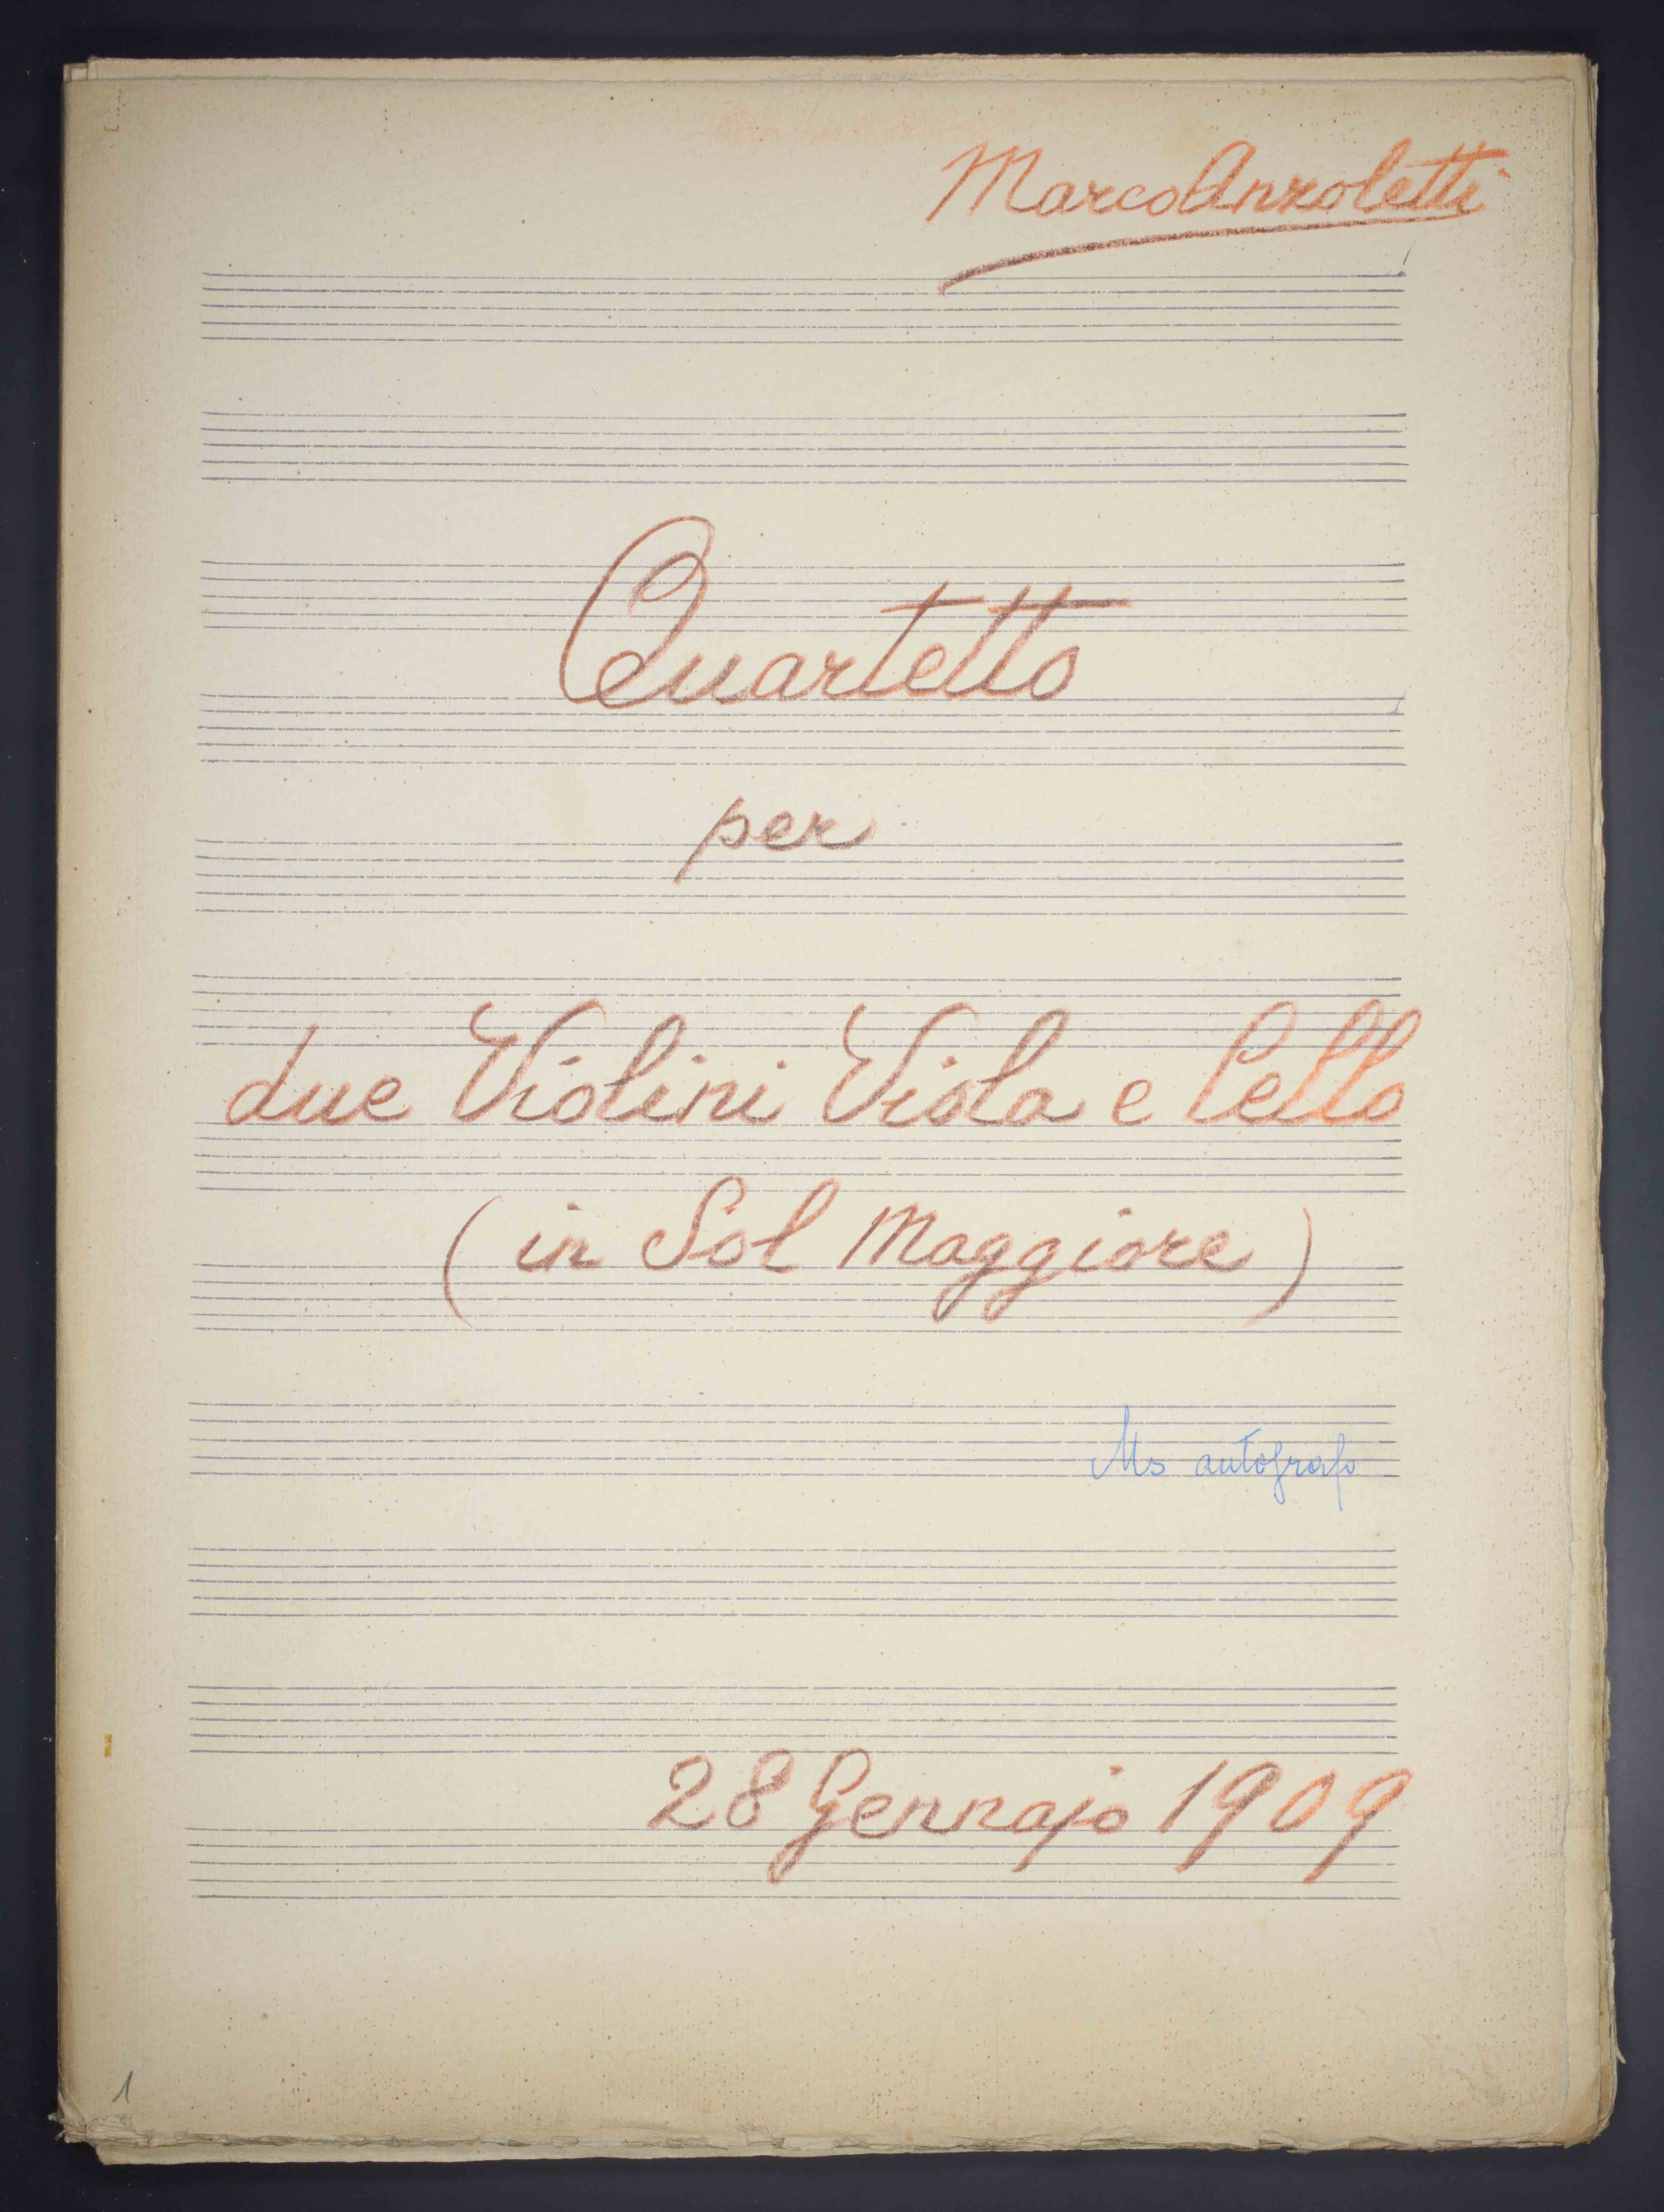 Marco Anzoletti
Quartetto
per
due Violini Viola e Cello
(in Sol Maggiore)
Ms autografo
28 Gennajo 1909
1